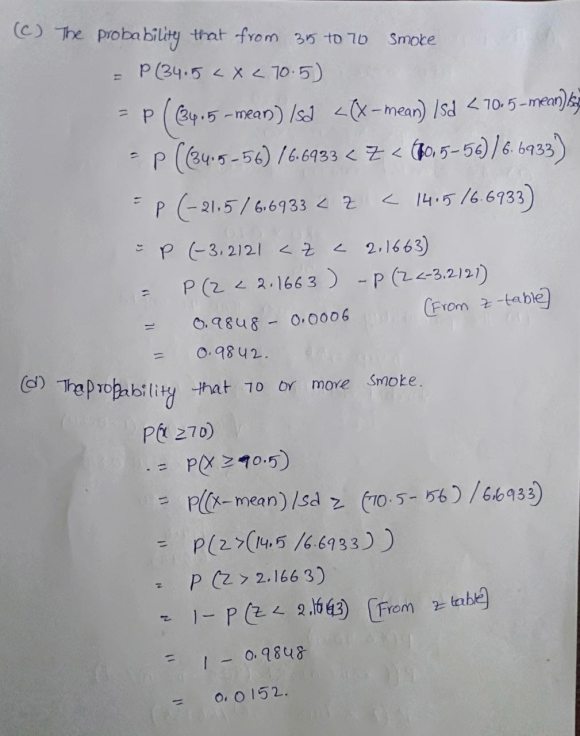 (c) The probability that from 35 to 70 smoke
= P(34.5 < x < 70.5)
= P((34.5-mean)/sd <(x-mean)/sd < 70.5-mean)/sd)
= P((34.5-56)/6.6933 < Z < (70.5-56)/6.6933)
= P(-21.5/6.6933 < z < 14.5/6.6933)
= P(-3.2121 < z < 2.1663)
= P(Z < 2.1663) - P(Z<-3.2121)
= 0.9848 - 0.0006 [From z-table]
= 0.9842.
(d) The probability that 70 or more smoke.
P(x ≥70)
.= P(X ≥ 70.5)
= P((x-mean)/sd ≥ (70.5-56)/6.6933)
= P(z>(14.5/6.6933))
= P(Z > 2.1663)
= 1- P(Z < 2.1663) [From z table]
= 1 - 0.9848
= 0.0152.